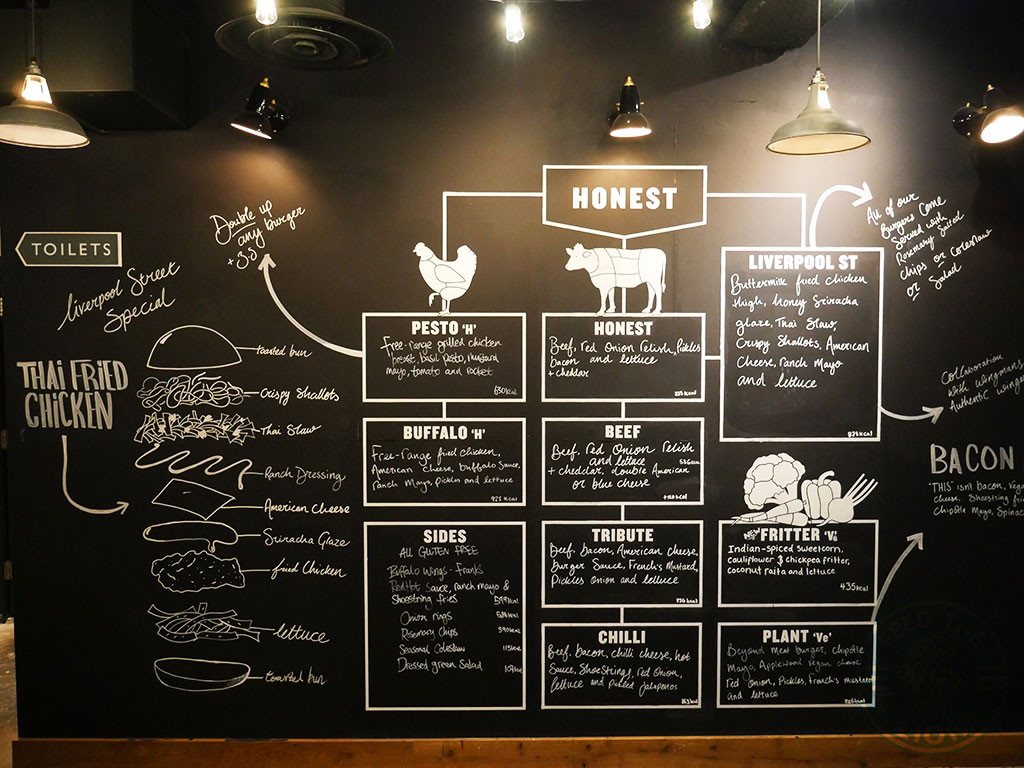 TOILETS
Liverpool Street
Special
THAI FRIED
CHICKEN
toasted bun
Crispy Shallots
Thai Slaw
Ranch Dressing
American Cheese
Sriracha Glaze
fried Chicken
lettuce
toasted bun
Double up
any burger
HONEST
PESTO 'H'
Free-range grilled chicken
breast, basil pesto, mustard
mayo, tomato and rocket
630kcal
BUFFALO 'H'
Free-range fried chicken,
American cheese, buffalo sauce,
ranch mayo, pickles and lettuce
925 kcal
SIDES
ALL GLUTEN FREE
Buffalo wings - Franks
RedHot sauce, ranch mayo &
Shoestring fries
Onion rings
Rosemary Chips
Seasonal Coleslaw
Dressed green Salad
HONEST
Beef, Red Onion Relish, Pickles
Bacon and lettuce
+ cheddar
BEEF
Beef, red Onion Relish
and lettuce
+ cheddar, double American
or blue cheese
TRIBUTE
Beef, bacon, American cheese,
burger Sauce, French's Mustard,
Pickles Onion and lettuce
CHILLI
Beef, bacon, chilli cheese, hot
Sauce, Shoestrings, red Onion,
lettuce and pickled Jalapenos
LIVERPOOL ST
Buttermilk fried chicken
thigh, honey Sriracha
glaze, Thai Slaw,
Crispy Shallots, American
Cheese, ranch Mayo
and lettuce
FRITTER 'V'
Indian-spiced sweetcorn,
cauliflower & chickpea fritter,
coconut raita and lettuce
435kcal
PLANT 'Ve'
Beyond Meat burger, chipotle
Mayo, Applewood vegan cheese
red Onion, Pickles, French's mustard
and lettuce
All of our
Burgers Come
Served with
Rosemary Salted
Chips or Coleslaw
or Salad
Collaboration
with wingmans
Authentic wing
BACON
'THIS' isn't bacon, vega
cheese, Shoestring fri
chipotle Mayo, Spinac